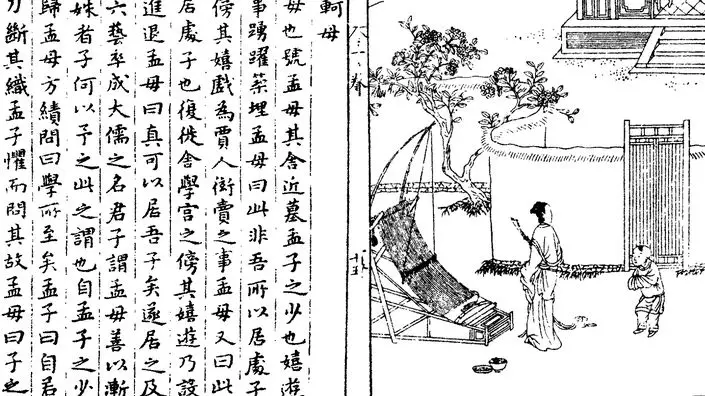 卷
十五
軻母
母也號孟母其舍近墓孟子之少也嬉遊
事踴躍築埋孟母曰此非吾所以居處子
傍其嬉戲為賈人衒賣之事孟母又曰此
居處子也復徙舍學宮之傍其嬉遊乃設
進退孟母曰真可以居吾子矣遂居之及
六藝卒成大儒之名君子謂孟母善以漸
姝者子何以予之此之謂也自孟子之少
歸孟母方績問曰學所至矣孟子曰自若
刀斷其織孟子懼而問其故孟母曰子之